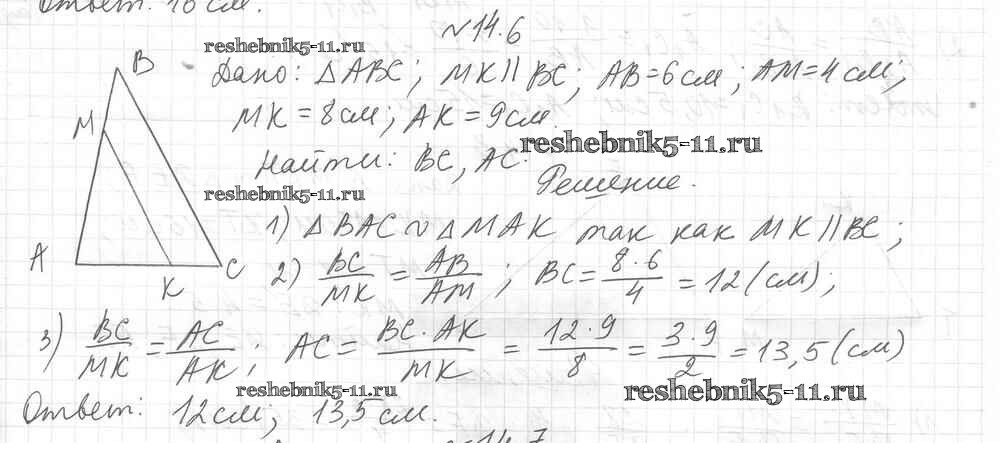 Ответ: 18 см.
№14.6
reshebnik5-11.ru
Дано: △ABC; MK∥BC; AB=6см; AM=4см;
MK=8см; AK=9см.
reshebnik5-11.ru
Найти: BC, AC.
Решение.
reshebnik5-11.ru
1) △BAC ~ △MAK так как MK∥BC;
2) BC/MK = AB/AM; BC = 8·6/4 = 12 (см);
3) BC/MK = AC/AK; AC = BC·AK/MK = 12·9/8 = 3·9/2 = 13,5 (см)
reshebnik5-11.ru
reshebnik5-11.ru
Ответ: 12см; 13,5см.
B
M
A
K
C